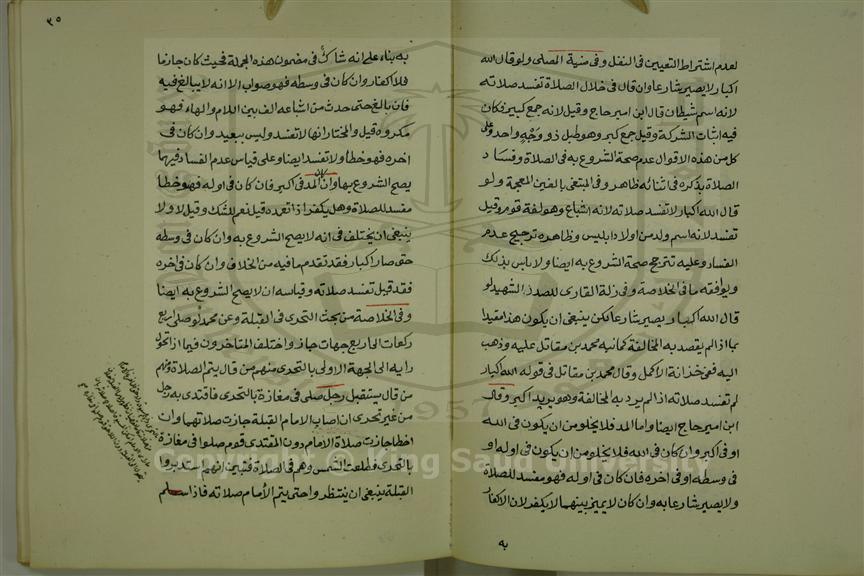 لعدم اشتراط التعيين في النفل وفي منية المصلي ولو قال الله
اكبار لا يصير شارعا وان قال في خلال الصلاة تفسد صلاته
لانه اسم شيطان قال ابن امير حاج وقيل لانه جمع كبير فكان
فيه اثبات الشركة وقيل جمع كبر وهو طبل ذو وجه واحد وعلى
كل من هذه الاقوال عدم صحة الشروع به في الصلاة وفساد
الصلاة بذكره في اثنائه ظاهر وفي المبتغى بالغين المعجمة ولو
قال الله اكبار لا تفسد صلاته لانه اشباع وهو لغة قوم وقيل
تفسد لانه اسم ولد من اولاد ابليس وظاهره ترجيح عدم
الفساد وعليه تترجح صحة الشروع به ايضا ولا باس بذلك
ويوافقه ما في الخلاصة وفي زلة القاري للصدر الشهيد لو
قال الله اكبار يصير شارعا لكن ينبغي ان يكون هذا مقيدا
بما اذا لم يقصد به المخالفة كما نبه محمد بن مقاتل عليه وذهب
اليه ففي خزانة الاكمل وقال محمد بن مقاتل في قوله الله اكبار
لم تفسد صلاته اذا لم يرد به المخالفة وهو يريد اكبر وقال
ابن امير حاج ايضا واما المد فلا يخلو من ان يكون في الله
او في اكبر وان كان في الله فلا يخلو من ان يكون في اوله او
في وسطه او في اخره فان كان في اوله فهو مفسد للصلاة
ولا يصير شارعا به وان كان لا يميز بينهما لا يكفر لان الاكفار
به
٣٥
به بناء على انه شاك في مضمون هذه الجملة فحيث كان جازما
فلا اكفار وان كان في وسطه فهو صواب الا انه لا يبالغ فيه
فان بالغ حتى حدث من اشباعه الف بين اللام والهاء فهو
مكروه قيل والمختار انها لا تفسد وليس ببعيد وان كان في
اخره فهو خطا ولا تفسد ايضا وعلى قياس عدم الفساد فيهما
يصح الشروع بهما وان المد في اكبر فان كان في اوله فهو خطا
كان
مفسد للصلاة وهل يكفر اذا تعمده قيل نعم للشك وقيل لا ولا
ينبغي ان يختلف في انه لا يصح الشروع به وان كان في وسطه
حتى صار اكبار فقد تقدم ما فيه من الخلاف وان كان في اخره
فقد قيل تفسد صلاته وقياسه ان لا يصح الشروع به ايضا
وفي الخلاصة من بحث التحري في القبلة وعن محمد لو صلى اربع
ركعات الى اربع جهات جاز واختلف المتاخرون فيما اذا تحول
رايه الى الجهة الاولى بالتحري منهم من قال يتم الصلاة ومنهم
من قال يستقبل رجل صلى في مفازة بالتحري فاقتدى به رجل
من غير تحري ان اصاب الامام القبلة جازت صلاتهما وان
اخطا جازت صلاة الامام دون المقتدي قوم صلوا في مفازة
بالتحري فطلعت الشمس وهم في الصلاة فتبين انهم استدبروا
القبلة ينبغي ان ينتظروا حتى يتم الامام صلاته فاذا سلم
Copyright © King Saud University
1957